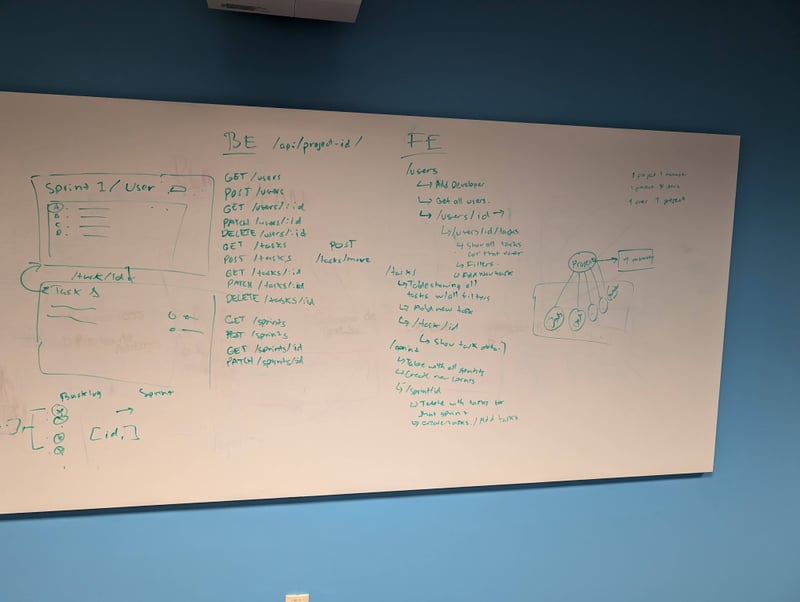 Sprint 1 / User
A
B
C
D
/task/id
Task 1
Backlog → Sprint
[id,]
BE /api/project-id/
GET /users
POST /users
GET /users/:id
PATCH /users/:id
DELETE /users/:id
GET /tasks
POST /tasks
GET /tasks/:id
PATCH /tasks/:id
DELETE /tasks/:id
POST
/tasks/move
GET /sprints
POST /sprints
GET /sprints/:id
PATCH /sprints/:id
FE
/users
↳ Add Developer
↳ Get all users.
↳ /users/id →
↳ /users/id/tasks
↳ Show all tasks
for that user
↳ Filters.
↳ Add New task
/tasks
↳ Table showing all
tasks w/ all filters
↳ Add new task
↳ /task/id
↳ Show task data.
/sprint
↳ Table with all
↳ Create new sprints
↳ /sprint/id
↳ Table with tasks for
that sprint
↳ create tasks / Add tasks
1 project 1 manager
1 user 1 project
Project